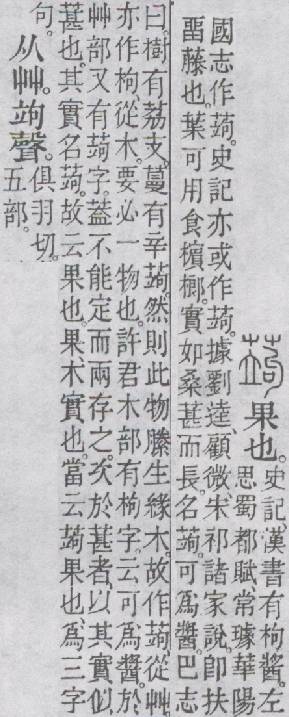 蒟果也。
史記、漢書有枸醬。左
思蜀都賦、常璩華陽
國志作蒟。史記亦或作蒟。據劉逵、顧微、宋祁諸家說、卽扶
畱藤也。葉可用食檳榔。實如桑葚而長。名蒟。可爲醬。巴志
曰。樹有荔支。蔓有辛蒟。然則此物縢生緣木。故作蒟從艸。
亦作枸從木。要必一物也。許君木部有枸字。云可爲醬。於
艸部又有蒟字。葢不能定而兩存之。次於葚者、以其實似
葚也。其實名蒟。故云果也。果、木實也。當云蒟果也、爲三字
句。
从艸。竘聲。
俱羽切。
五部。